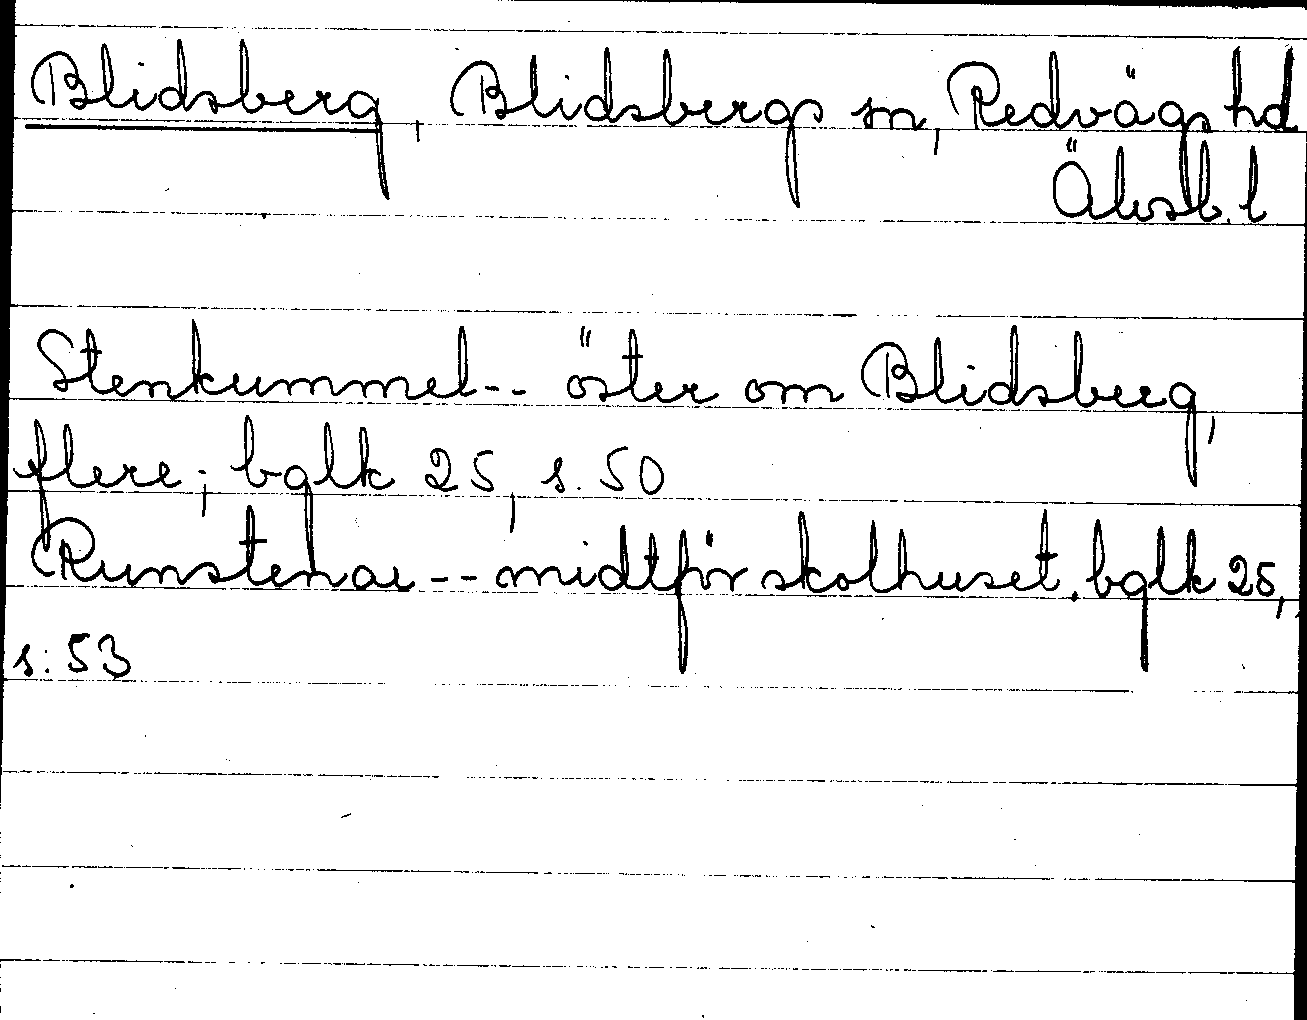 Blidsberg, Blidsbergs sn, Redvägs hd
Älvsb. l
Stenkummel-- öster om Blidsberg,
flere; bglk 25, s. 50
Runstenar -- midtför skolhuset. bglk 25,
s: 53